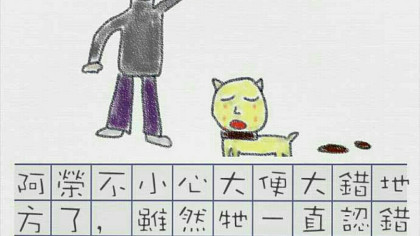 阿榮不小心大便大錯地
方了，雖然牠一直認錯